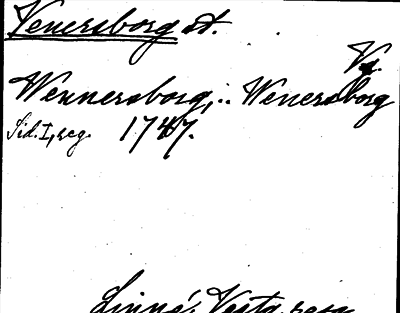 Venersborg st.
Vg.
Wennersborg, .. Wenersborg
Sid. I, reg. 1747.
Linné, Vestg. resa